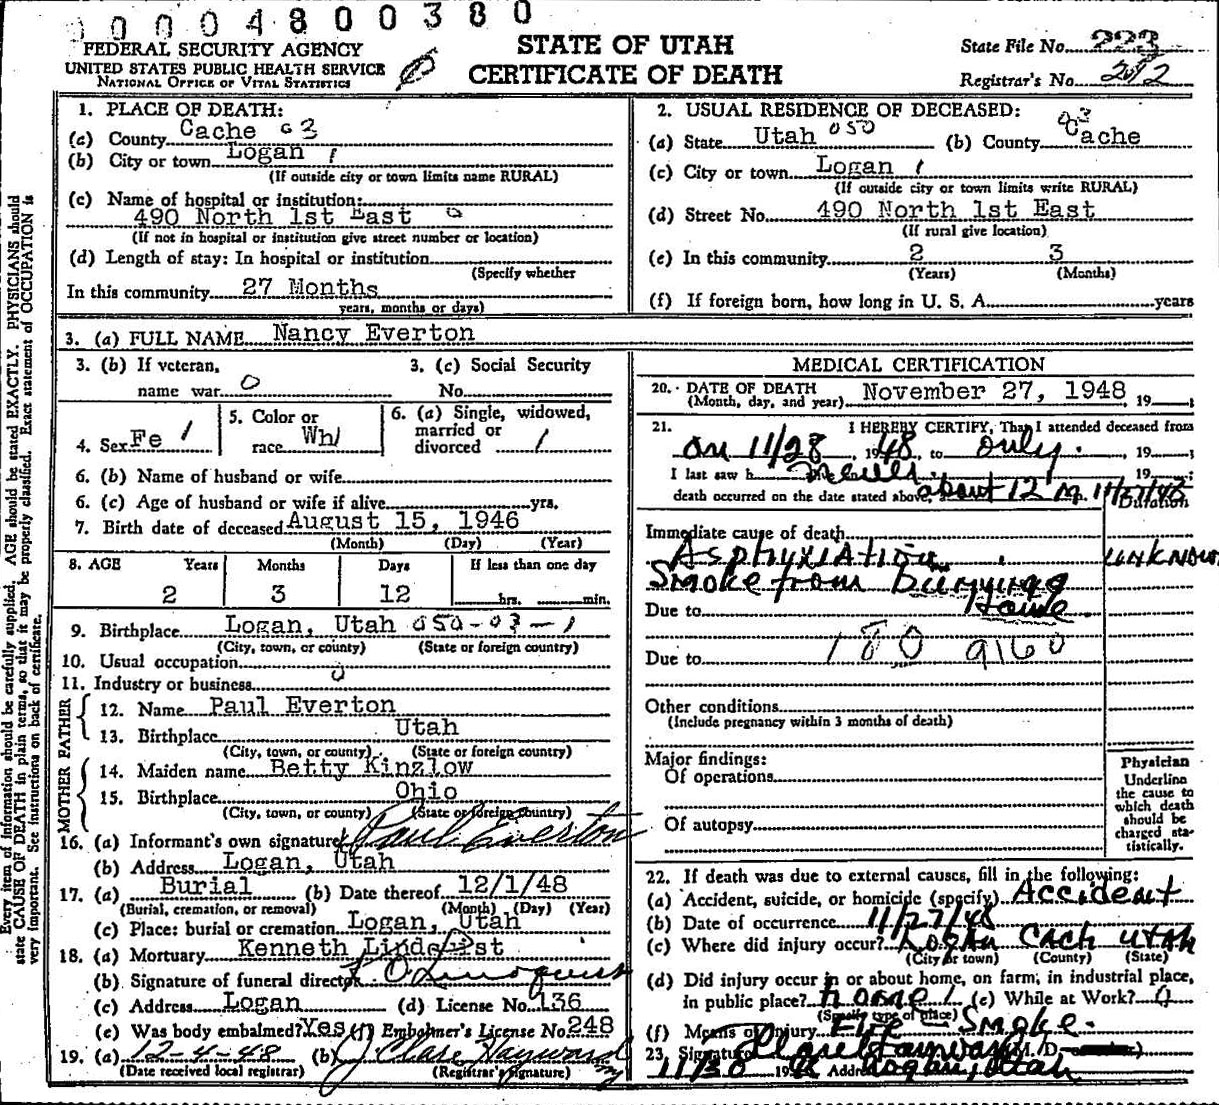 0000480 0380
FEDERAL SECURITY AGENCY
UNITED STATES PUBLIC HEALTH SERVICE
NATIONAL OFFICE OF VITAL STATISTICS
STATE OF UTAH
CERTIFICATE OF DEATH
State File No. 223
Registrar's No. 292
Every item of information should be carefully supplied. AGE should be stated EXACTLY. PHYSICIANS should
state CAUSE OF DEATH in plain terms, so that it may be properly classified. Exact statement of OCCUPATION is
very important. See instructions on back of certificate.
1. PLACE OF DEATH:
(a) County Cache 03
(b) City or town Logan 1
(If outside city or town limits name RURAL)
(c) Name of hospital or institution:
490 North 1st East 0
(If not in hospital or institution give street number or location)
(d) Length of stay: In hospital or institution
(Specify whether
In this community 27 Months
years, months or days)
2. USUAL RESIDENCE OF DECEASED:
(a) State Utah 050 (b) County Cache 03
(c) City or town Logan 1
(If outside city or town limits write RURAL)
(d) Street No. 490 North 1st East
(If rural give location)
(e) In this community 2 3
(Years) (Months)
(f) If foreign born, how long in U. S. A. years
3. (a) FULL NAME Nancy Everton
3. (b) If veteran, 3. (c) Social Security
name war 0 No.
4. Sex Fe 1
5. Color or
race Wh 1
6. (a) Single, widowed,
married or
divorced 1
6. (b) Name of husband or wife
6. (c) Age of husband or wife if alive yrs.
7. Birth date of deceased August 15, 1946
(Month) (Day) (Year)
8. AGE Years Months Days If less than one day
2 3 12 hrs. min.
9. Birthplace Logan, Utah 050-03-1
(City, town, or county) (State or foreign country)
10. Usual occupation
11. Industry or business 0
FATHER
12. Name Paul Everton
13. Birthplace Utah
(City, town, or county) (State or foreign country)
MOTHER
14. Maiden name Betty Kinzlow
15. Birthplace Ohio
(City, town, or county) (State or foreign country)
16. (a) Informant's own signature Paul Everton
(b) Address Logan, Utah
17. (a) Burial (b) Date thereof 12/1/48
(Burial, cremation, or removal) (Month) (Day) (Year)
(c) Place: burial or cremation Logan, Utah
18. (a) Mortuary Kenneth Lindquist
(b) Signature of funeral director K O Lindquist
(c) Address Logan (d) License No. 136
(e) Was body embalmed? Yes (f) Embalmer's License No. 248
19. (a) 12-4-48 (b) J. Clare Hayward
(Date received local registrar) (Registrar's signature)
MEDICAL CERTIFICATION
20. DATE OF DEATH November 27, 1948, 19 ;
(Month, day, and year)
21. I HEREBY CERTIFY, That I attended deceased from
on 11/28, 1948, to only., 19 ;
I last saw h never. 19 ;
death occurred on the date stated above, about 12 M 11/27/48
Duration
Immediate cause of death
Asphyxiation unknown
Smoke from burning
Due to Home
180 9160
Due to
Other conditions
(Include pregnancy within 3 months of death)
Major findings:
Of operations
Of autopsy
Physician
Underline
the cause to
which death
should be
charged sta-
tistically.
22. If death was due to external causes, fill in the following:
(a) Accident, suicide, or homicide (specify) Accident
(b) Date of occurrence 11/27/48
(c) Where did injury occur? Logan Cach Utah
(City or town) (County) (State)
(d) Did injury occur in or about home, on farm, in industrial place,
in public place? home 1 (e) While at Work? 0
(Specify type of place)
(f) Means of injury Fire – Smoke.
23. Signature J Clare Hayward M. D.
11/30 19 Address Logan, Utah